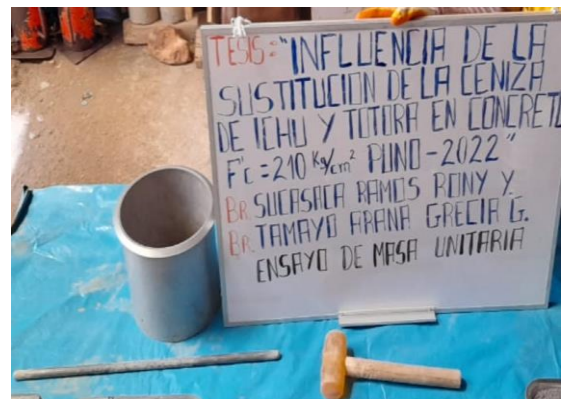 TESIS: "INFLUENCIA DE LA
SUSTITUCION DE LA CENIZA
DE ICHU Y TOTORA EN CONCRETO
F'c = 210 Kg/cm² PUNO - 2022"
BR. SUCASACA RAMOS RONY Y.
BR. TAMAYO ARANA GRECIA G.
ENSAYO DE MASA UNITARIA